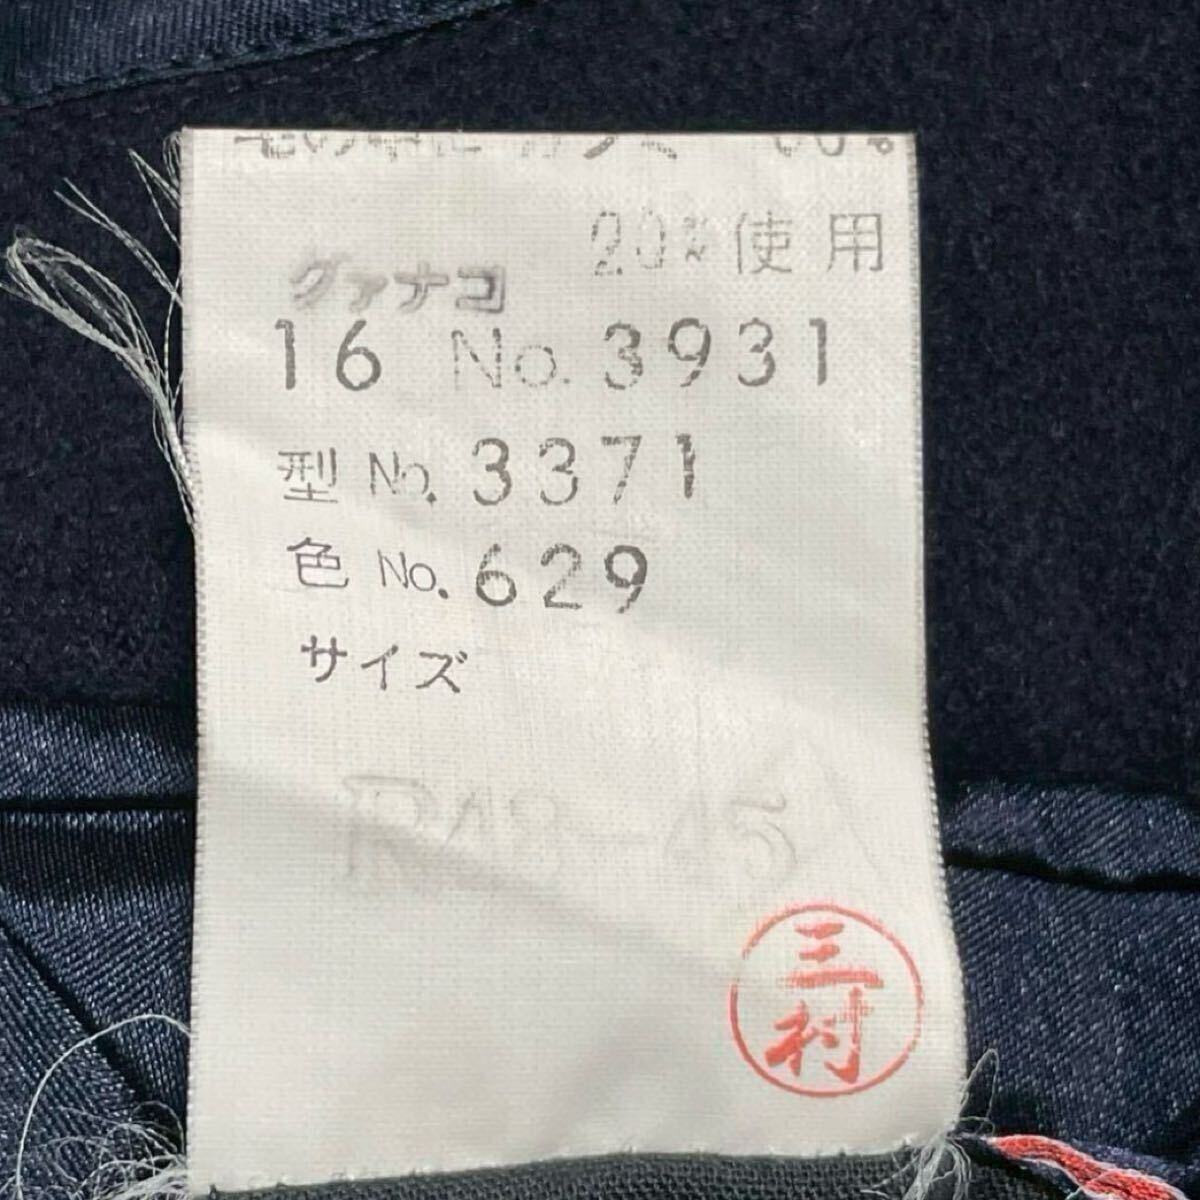 20%使用
グァナコ
16 No. 3931
型 No. 3371
色 No. 629
サイズ
R48-45
三村